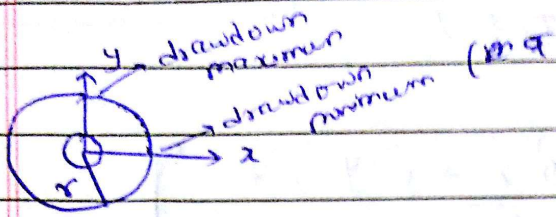 y
drawdown
maximum (m
drawdown
minimum
x
r